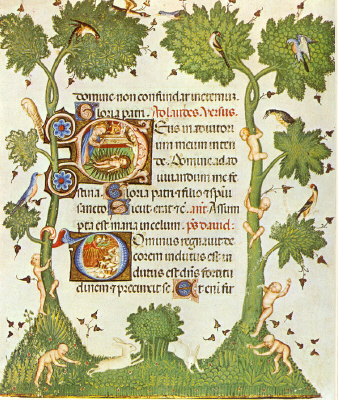 domine non confundar ineternuz.
Gloria patri. Ad laudes. Versus.
Deus in adiutori
um meum inten
de. Domine ad ad
iuuandum me fe
stina. Gloria patri et filio et spiu
sancto. Sicut erat etc. ant. Assum
pta est maria in celum. ps. dauid.
Dominus regnauit de
corem indutus est in
dutus est dns fortitu
dinem et precinxit se. Et eni fir